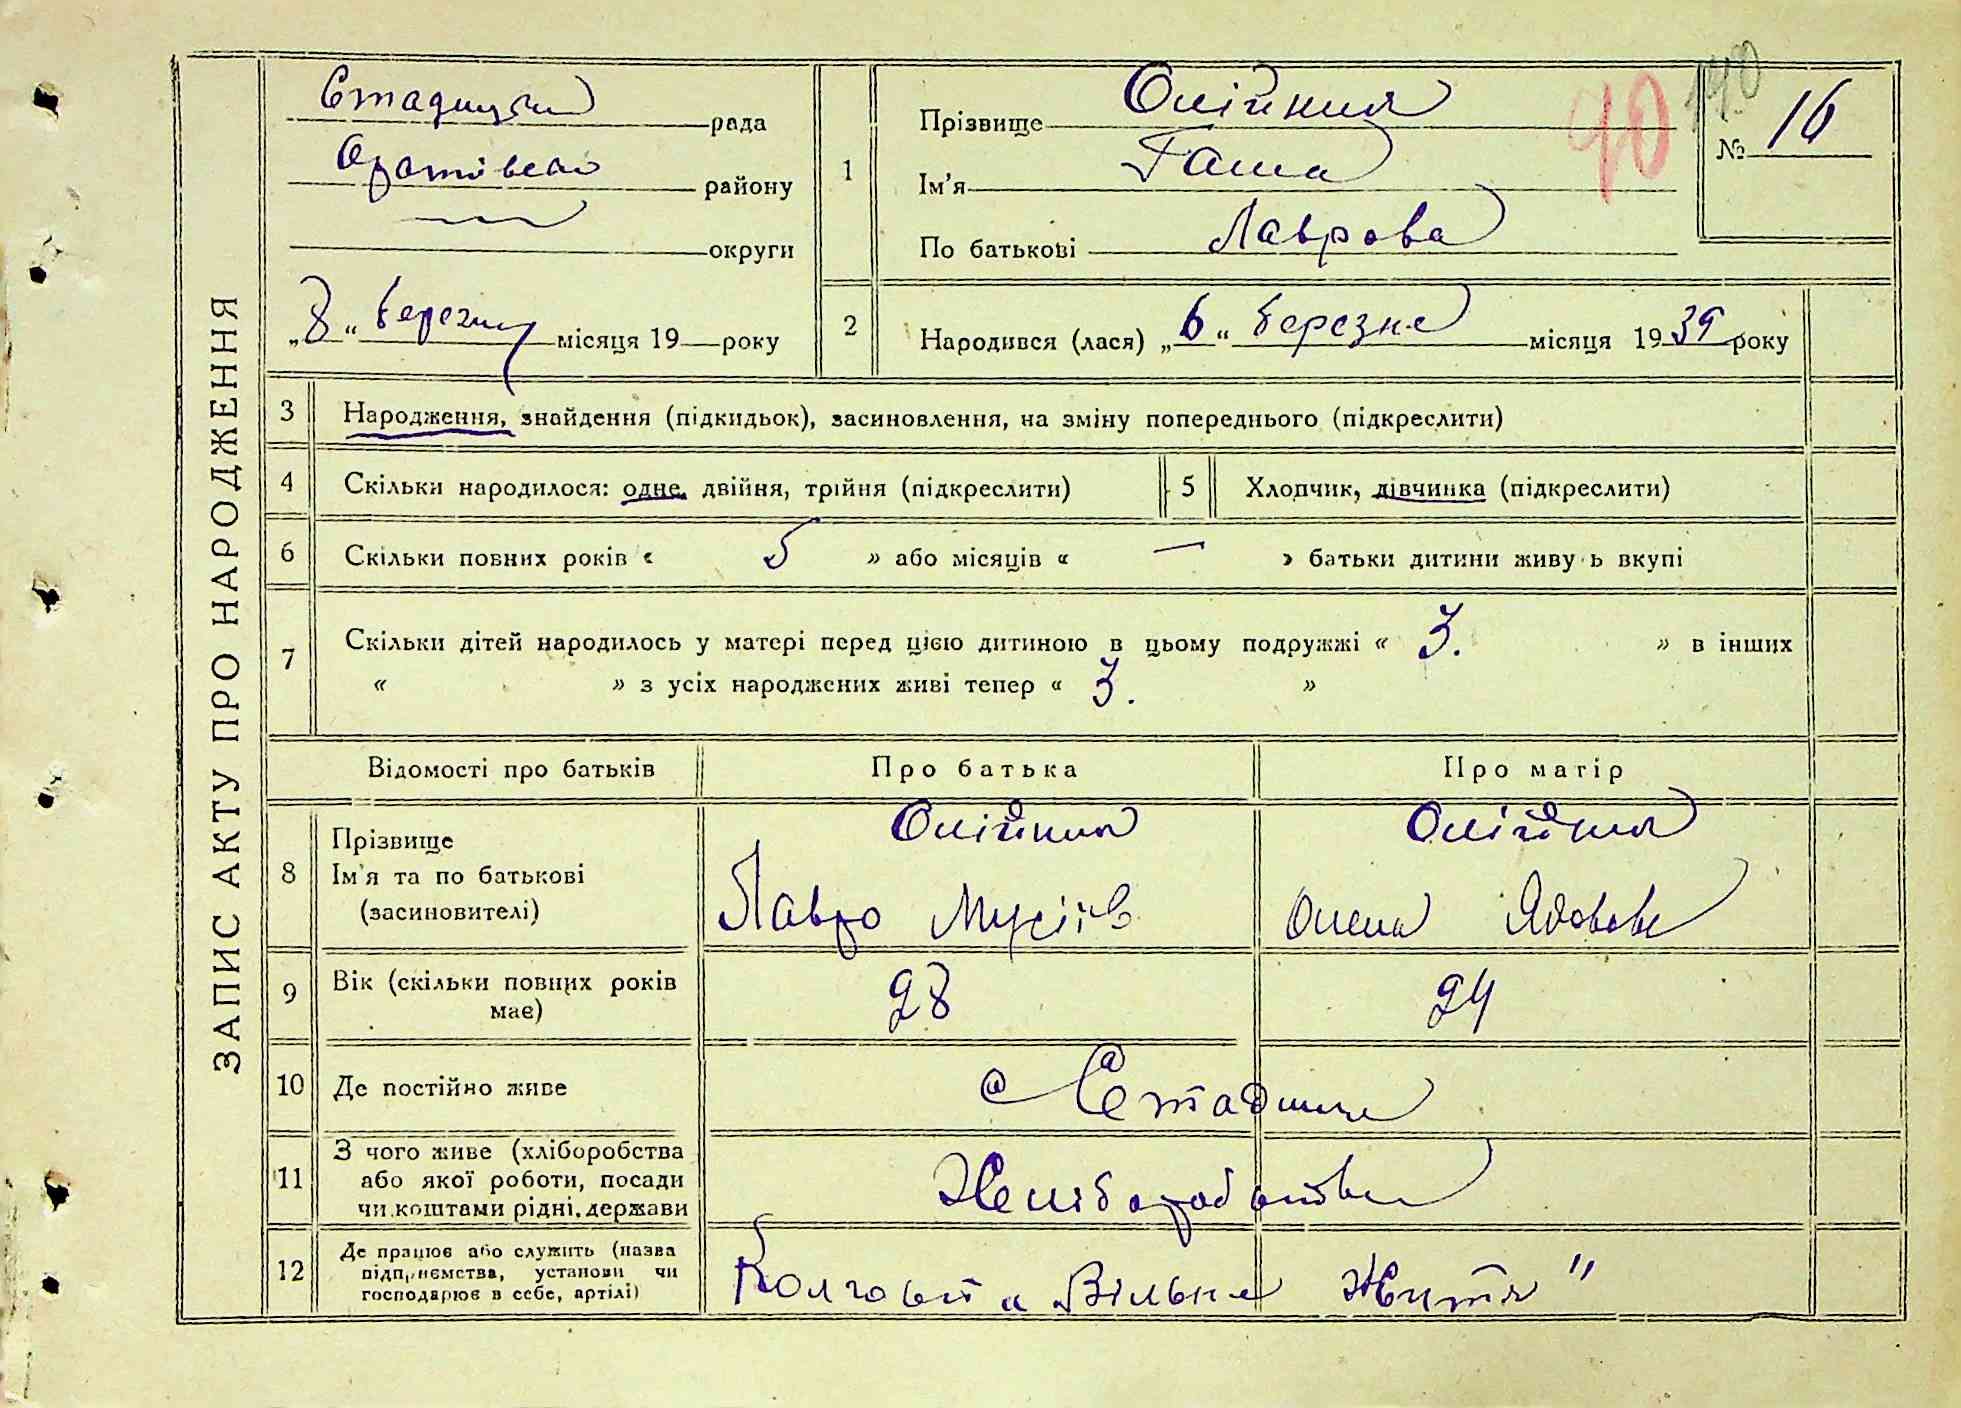 ЗАПИС АКТУ ПРО НАРОДЖЕННЯ
рада
району
округи
„8“ березня місяця 19 року
1
Прізвище Олійник
Ім'я Гаша
По батькові Лаврова
40
140
№ 16
2
Народився (лася) „6“ березня місяця 1939 року
3 Народження, знайдення (підкидьок), засиновлення, на зміну попереднього (підкреслити)
4 Скільки народилося: одне, двійня, трійня (підкреслити) 5 Хлопчик, дівчинка (підкреслити)
6 Скільки повних років « 5 » або місяців « — » батьки дитини живуть вкупі
7 Скільки дітей народилось у матері перед цією дитиною в цьому подружжі « 3. » в інших
« » з усіх народжених живі тепер « 3. »
Відомості про батьків Про батька Про матір
8 Прізвище Олійник Олійник
Ім'я та по батькові Лавро Мусіїв Олена
(засиновителі)
9 Вік (скільки повних років 28 24
має)
10 Де постійно живе с Стадниця
11 З чого живе (хліборобства
або якої роботи, посади Хліборобства
чи коштами рідні, держави
12 Де працює або служить (назва
підприємства, установи чи Колгосп „Вільне життя"
господарює в себе, артілі)